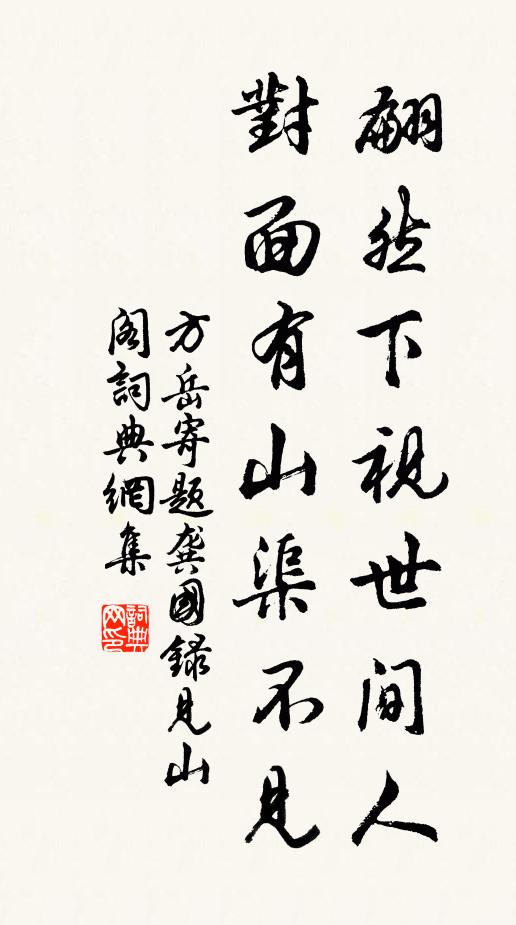 翩然下視世間人
對面有山渠不見
方岳寄題龔國錄見山
閣詞典網集
詞典
网印